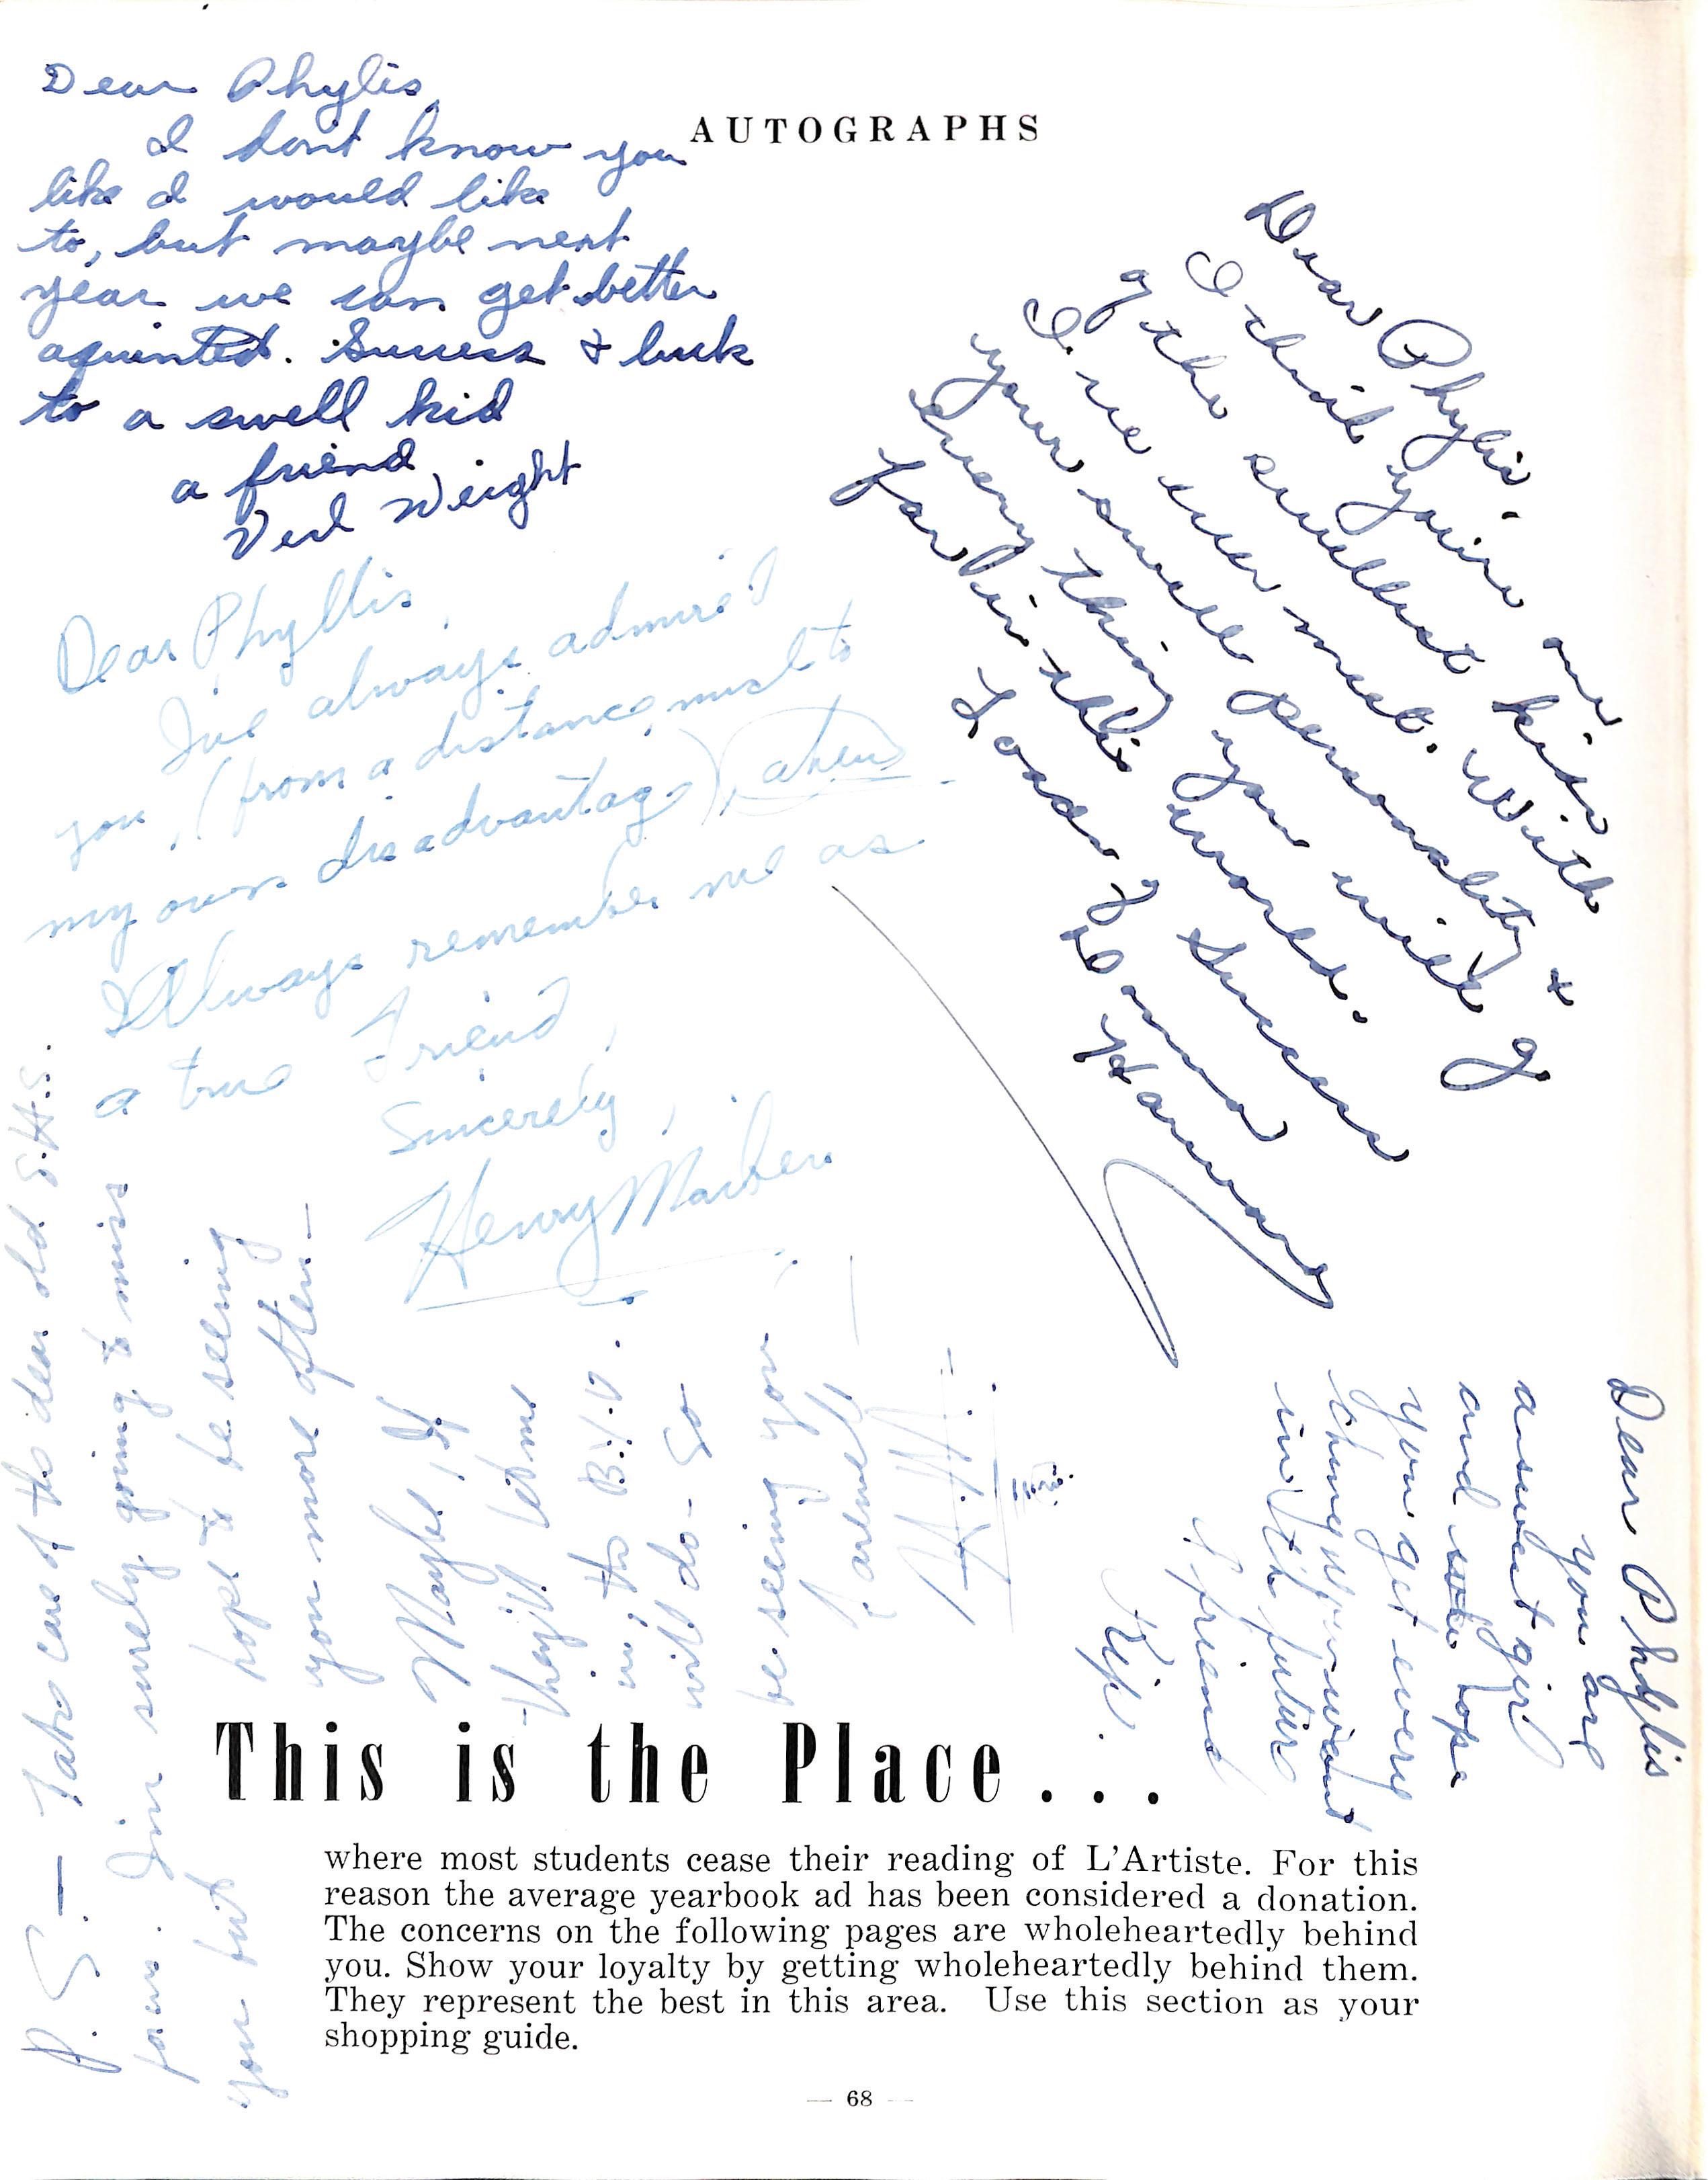 AUTOGRAPHS
Dear Phylis,
I dont know you
like I would like
to, but maybe next
year we can get better
aquinted. Success & luck
to a swell kid
a friend
Verl Weight
Dear Phylis.
I think you're one
of the swellest kids
I've ever met. With
your swell personality &
every thing you will go
far in this world.
Loads of Success
Donna
Harward
Dear Phyllis,
I've always admired
you, (from a distance, much to
my own disadvantage), ahem
Always remember me as
a true friend,
Sincerely,
Henry
P.S. — Take care of the dear old S.H.S.
for me. I'm surely going to miss
you but hope to be seeing
you more often —
Maybe, if
they'll let me
in, the B.Y.U.
will do - So
be seeing you
H.M.
Dear Phylis
you are
a sweet girl
and hope
you get every
thing you want
in the future
A friend
Kip.
This is the Place...
where most students cease their reading of L'Artiste. For this
reason the average yearbook ad has been considered a donation.
The concerns on the following pages are wholeheartedly behind
you. Show your loyalty by getting wholeheartedly behind them.
They represent the best in this area. Use this section as your
shopping guide.
— 68 —